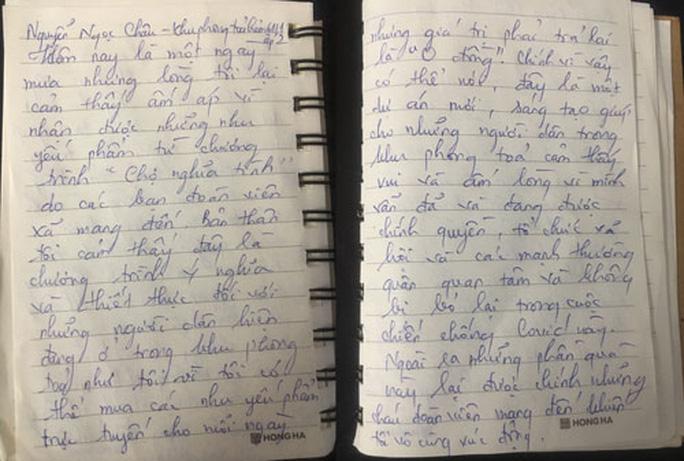 Nguyễn Ngọc Châu - Khu phong toả
Hôm nay là một ngày
mưa nhưng lòng tôi lại
cảm thấy ấm áp vì
nhận được những nhu
yếu phẩm từ chương
trình "Chợ nghĩa tình"
do các bạn đoàn viên
xã mang đến. Bản thân
tôi cảm thấy đây là
chương trình ý nghĩa
và thiết thực đối với
những người dân hiện
đang ở trong khu phong
toả như tôi vì tôi có
thể mua các nhu yếu phẩm
trực tuyến cho mỗi ngày
HONG HA
nhưng giá trị phải trả lại
là "0 đồng". Chính vì vậy
có thể nói, đây là một
dự án mới, sáng tạo giúp
cho những người dân trong
khu phong toả cảm thấy
vui và ấm lòng vì mình
vẫn đã và đang được
chính quyền, tổ chức xã
hội và các mạnh thường
quân quan tâm và không
bị bỏ lại trong cuộc
chiến chống Covid này.
Ngoài ra những phần quà
này lại được chính những
cháu đoàn viên mang đến khiến
tôi vô cùng xúc động.
HONG HA